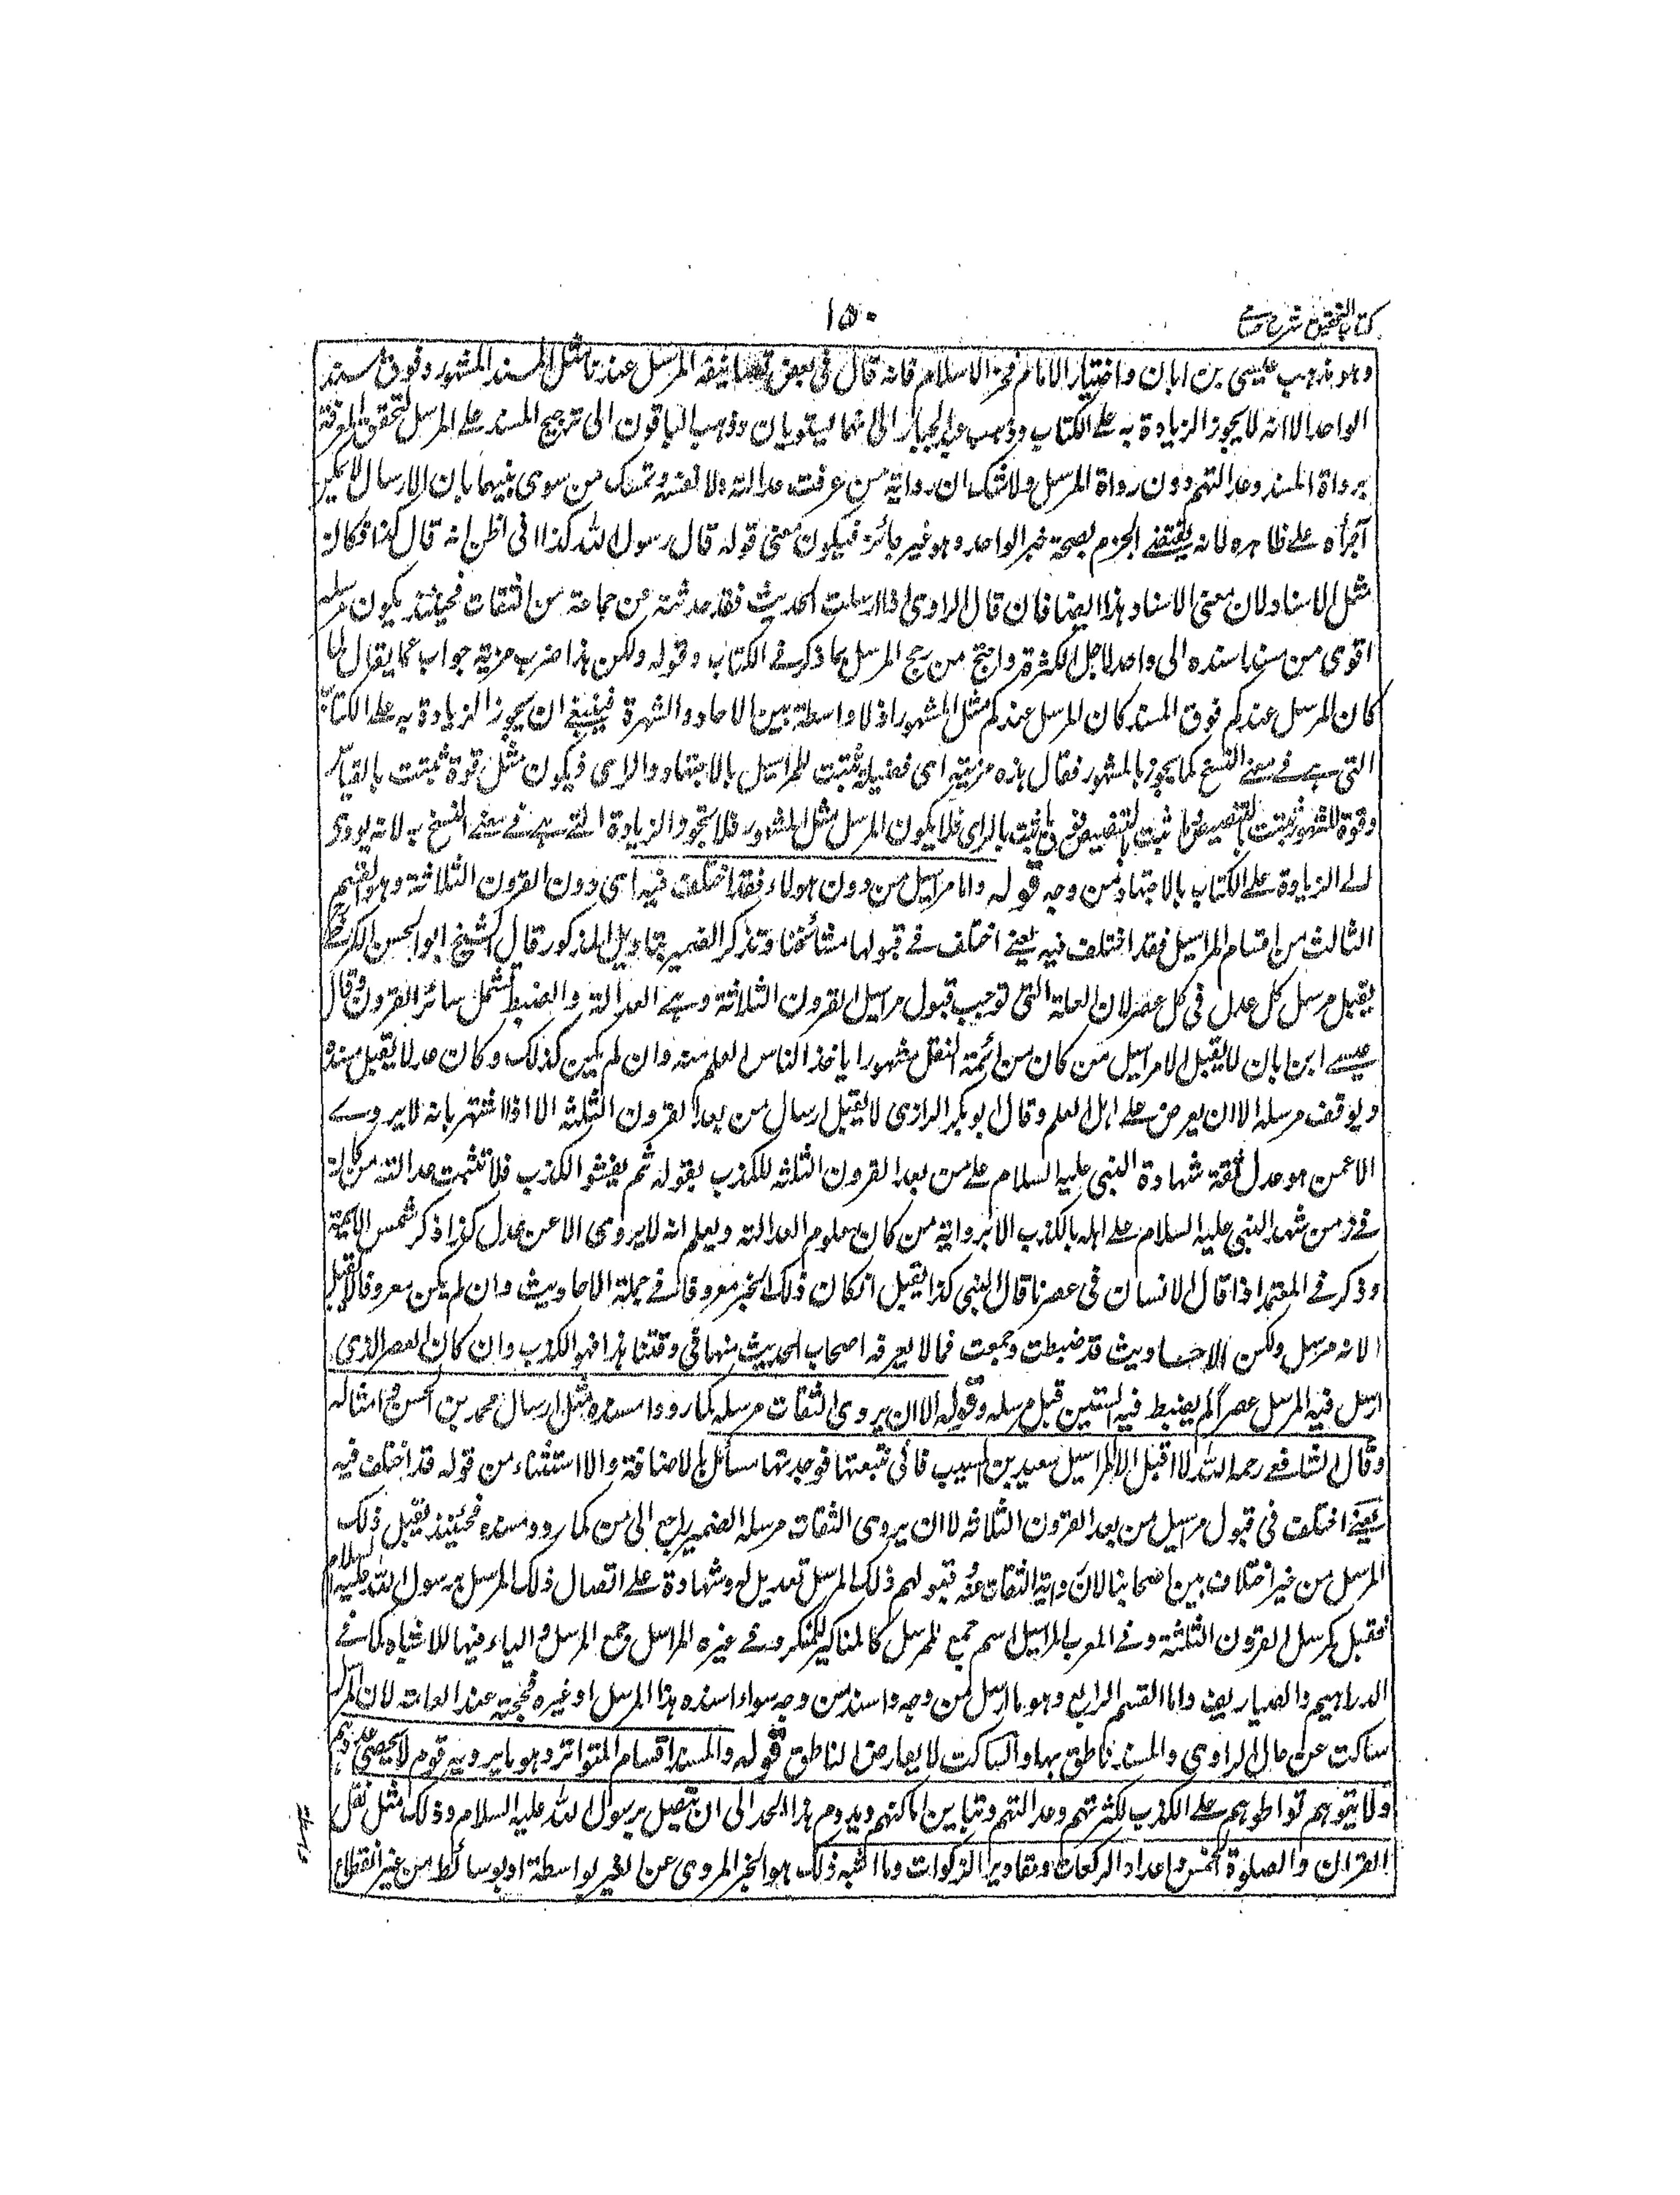 كتاب التحقيق شرح حسامي
١٥٠
وهو مذهب عيسى بن ابان واختيار الامام فخر الاسلام فانه قال فى بعض تصانيفه المرسل عندنا مثل المسند المشهور وفوق مسند
الواحد الا انه لا يجوز الزيادة به على الكتاب وذهب عبد الجبار الى انهما يستويان وذهب الباقون الى ترجيح المسند على المرسل لتحقق المعرفة
برواة المسند وعدالتهم دون رواة المرسل ولا شك ان رواية من عرفت عدالته ولا نفسه وتمسك من سوى بينهما بان الارسال لا يمكن
اجراه على ظاهره لانه يقتضى الجزم بصحة خبر الواحد وهو غير جائز فيكون معنى قوله قال رسول الله كذا اى اظن انه قال كذا فكان
مثل الاسناد لان معنى الاسناد هذا ايضا فان قال الراوى اذا ارسلت الحديث فقد حدثته عن جماعة من الثقات فحينئذ يكون مرسله
اقوى من مسند اسنده الى واحد لاجل الكثرة واحتج من رجح المرسل بما ذكر فى الكتاب وقوله ولكن هذا ضرب مزية جواب عما يقال لما
كان المرسل عندكم فوق المسند كان المرسل عندكم مثل المشهور اذ لا واسطة بين الاحاد والشهرة فينبغى ان يجوز الزيادة به على الكتاب
التى هى فى معنى النسخ كما يجوز بالمشهور فقال هذه مزية اى فضيلة ثبتت للمراسيل بالاجتهاد والراى فيكون مثل قوة ثبتت بالقياس
وقوة المشهور ثبتت بالتنصيص وما ثبت بالتنصيص فوق ما ثبت بالراى فلا يكون المرسل مثل المشهور فلا تجوز الزيادة التى هى فى معنى النسخ به لانه يودى
الى الزيادة على الكتاب بالاجتهاد من وجه قوله واما مراسيل من دون هولاء فقد اختلف فيه اى دون القرون الثلاثة وهو القسم
الثالث من اقسام المراسيل فقد اختلف فيه يعنى اختلف فى قبولها مشائخنا وتذكر الضمير بتاويل المذكور قال الشيخ ابو الحسن الكرخى
يقبل مرسل كل عدل فى كل عصر لان العلة التى توجب قبول مراسيل القرون الثلاثة وهى العدالة والضبط تشمل سائر القرون وقال
عيسى ابن ابان لا يقبل الا مراسيل من كان من ائمة النقل مشهورا ياخذ الناس العلم منه وان لم يكن كذلك وكان عدلا يقبل مسنده
ويوقف مرسله الا ان يعرض على اهل العلم وقال ابو بكر الرازى لا يقبل ارسال من بعد القرون الثلثة الا اذا اشتهر بانه لا يروى
الا عمن هو عدل ثقة شهادة النبى عليه السلام على من بعد القرون الثلثة للكذب بقوله ثم يفشو الكذب فلا تثبت عدالة من كان
فى زمن شهد النبى عليه السلام على اهله بالكذب الا برواية من كان معلوم العدالة ويعلم انه لا يروى الا عن عدل كذا ذكر شمس الايمة
وذكر فى المعتمد اذا قال الانسان فى عصرنا قال النبى كذا يقبل انكان ذلك الخبر معروفا فى جملة الاحاديث وان لم يكن معروفا لا يقبل
لا لانه مرسل ولكن الاحاديث قد ضبطت وجمعت فما لا يعرفه اصحاب الحديث منها فى وقتنا هذا فهو الكذب وان كان العصر الذى
ارسل فيه المرسل عصرا لم يضبط فيه السنن قبل مرسله وقوله الا ان يروى الثقات مرسله كما رووا مسنده مثل ارسال محمد بن الحسن وامثاله
وقال الشافعى رحمه الله لا اقبل الا مراسيل سعيد بن المسيب فانى تتبعتها فوجدتها مسائل بالاضافة والا استثناء من قوله قد اختلف فيه
يعنى اختلف فى قبول مراسيل من بعد القرون الثلاثة لا ان يروى الثقات مرسله الضمير راجع الى من كما رووا مسنده فحينئذ يقبل ذلك
المرسل من غير اختلاف بين اصحابنا لان رواية الثقات عنه وقبولهم ذلك المرسل تعديل له وشهادة على اتصال ذلك المرسل برسول الله عليه السلام
فقبل كمرسل القرون الثلثة وفى المغرب المراسيل اسم جمع للمرسل كالمناكير للمنكر وفى غيره المراسل جمع المرسل والياء فيها للاشباع كما فى
الدراهيم والصياريف واما القسم الرابع وهو ما ارسل من وجه واسند من وجه سواء اسنده هذا المرسل او غيره فحجة عند العامة لان المرسل
ساكت عن حال الراوى والمسند ناطق بها والساكت لا يعارض الناطق قوله والمسند اقسام المتواتر وهو ما يرويه قوم لا يحصى عددهم
ولا يتوهم تواطوهم على الكذب لكثرتهم وعدالتهم وتباين اماكنهم ويدوم هذا الحد الى ان يتصل برسول الله عليه السلام وذلك مثل نقل
القران والصلوة الخمس واعداد الركعات ومقادير الزكوات وما اشبه ذلك هو الخبر المروى عن الغير بواسطة او بوسائط من غير انقطاع